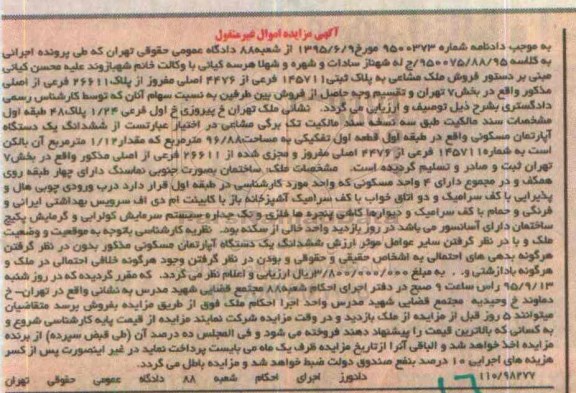 آگهی مزایده اموال غیرمنقول
به موجب دادنامه شماره ۹۵۰۰۳۷۳ مورخ ۱۳۹۵/۶/۹ از شعبه ۸۸ دادگاه عمومی حقوقی تهران که طی پرونده اجرائی
به کلاسه ۹۵۰۰۷۵/۸۸/۹۵ج له شهناز سادات و شهره و شهلا هرسه کیانی با وکالت خانم شهبازوند علیه محسن کیانی
مبنی بر دستور فروش ملک مشاعی به پلاک ثبتی ۱۴۵۷۱۱ فرعی از ۴۴۷۶ اصلی مفروز از پلاک ۲۶۶۱۱ فرعی از اصلی
مذکور واقع در بخش ۷ تهران و تقسیم وجه حاصل از فروش بین طرفین به نسبت سهام آنان که توسط کارشناس رسمی
دادگستری بشرح ذیل توصیف و ارزیابی می گردد. نشانی ملک تهران خ پیروزی خ اول قرعی ۱/۲۴ پلاک ۴۸ طبقه اول
مشخصات سند مالکیت طبق سه نسخه سند مالکیت تک برگی مشاعی در اختیار عبارتست از ششدانگ یک دستگاه
آپارتمان مسکونی واقع در طبقه اول قطعه اول تفکیکی به مساحت ۹۶/۸۸ مترمربع که مقدار ۱/۱۲ مترمربع آن بالکن
است به شماره ۱۴۵۷۱۱ فرعی از ۴۴۷۶ اصلی مفروز و مجزی شده از ۲۶۶۱۱ فرعی از اصلی مذکور واقع در بخش ۷
تهران ثبت و صادر و تسلیم گردیده است. مشخصات ملک: ساختمان بصورت جنوبی نماسنگ دارای چهار طبقه روی
همکف و در مجموع دارای ۴ واحد مسکونی که واحد مورد کارشناسی در طبقه اول قرار دارد درب ورودی چوبی هال و
پذیرایی با کف سرامیک و دو اتاق خواب با کف سرامیک آشپزخانه باز با کابینت ام دی اف سرویس بهداشتی ایرانی و
فرنگی و حمام با کف سرامیک و دیوارها کاشی پنجره ها فلزی و تک جداره سیستم سرمایش کولرآبی و گرمایش پکیج
ساختمان دارای آسانسور می باشد در روز بازدید واحد خالی از سکنه بود. نظریه کارشناسی باتوجه به موقعیت و وضعیت
ملک و با در نظر گرفتن سایر عوامل موثر ارزش ششدانگ یک دستگاه آپارتمان مسکونی مذکور بدون در نظر گرفتن
هرگونه بدهی های احتمالی به اشخاص حقیقی و حقوقی و بودن در نظر گرفتن وجود هرگونه خلافی احتمالی در ملک و
هرگونه بازداشتی و.. به مبلغ ۳/۸۰۰/۰۰۰/۰۰۰ ریال ارزیابی و اعلام نظر می گردد. که مقرر گردیده که در روز شنبه
۹۵/۹/۱۳ راس ساعت ۹ صبح در دفتر اجرای احکام شعبه ۸۸ مجتمع قضایی شهید مدرس به نشانی واقع در تهران- خ
دماوند خ وحیدیه مجتمع قضایی شهید مدرس واحد اجرا احکام ملک فوق از طریق مزایده بفروش برسد متقاضیان
میتوانند ۵ روز قبل از مزایده از ملک بازدید و در وقت مزایده شرکت نمایند مزایده از قیمت پایه کارشناسی شروع و
به کسانی که بالاترین قیمت را پیشنهاد دهند فروخته می شود و فی المجلس ده درصد آن (طی قبض سپرده) از برنده
مزایده اخذ خواهد شد و الباقی آنرا ازتاریخ مزایده ظرف یک ماه می بایست پرداخت نماید در غیر اینصورت پس از کسر
هزینه های اجرایی ۱۰ درصد بنفع صندوق دولت ضبط خواهد شد و مزایده باطل می گردد.
۱۱۰/۹۸۲۷۷ دادورز اجرای احکام شعبه ۸۸ دادگاه عمومی حقوقی تهران